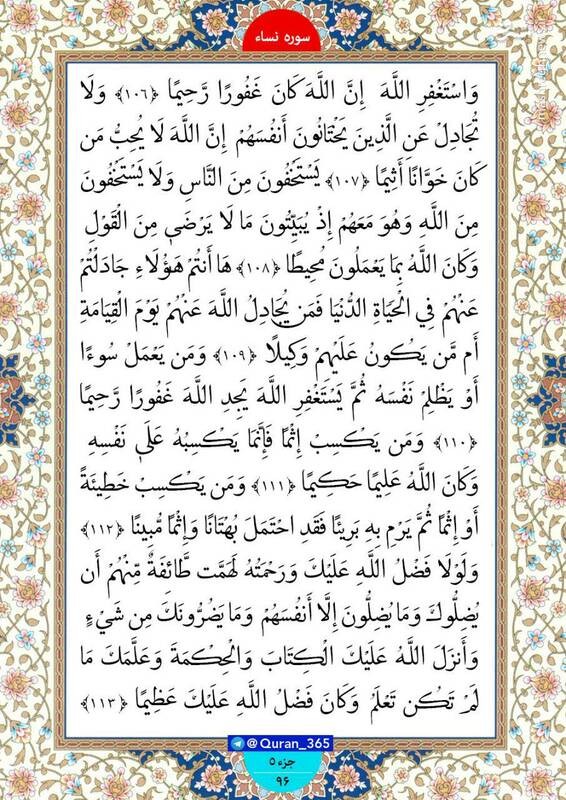 سوره نساء
وَاسْتَغْفِرِ اللَّهَ إِنَّ اللَّهَ كَانَ غَفُورًا رَّحِيمًا ﴿١٠٦﴾ وَلَا
تُجَادِلْ عَنِ الَّذِينَ يَخْتَانُونَ أَنفُسَهُمْ إِنَّ اللَّهَ لَا يُحِبُّ مَن
كَانَ خَوَّانًا أَثِيمًا ﴿١٠٧﴾ يَسْتَخْفُونَ مِنَ النَّاسِ وَلَا يَسْتَخْفُونَ
مِنَ اللَّهِ وَهُوَ مَعَهُمْ إِذْ يُبَيِّتُونَ مَا لَا يَرْضَىٰ مِنَ الْقَوْلِ
وَكَانَ اللَّهُ بِمَا يَعْمَلُونَ مُحِيطًا ﴿١٠٨﴾ هَا أَنتُمْ هَؤُلَاءِ جَادَلْتُمْ
عَنْهُمْ فِي الْحَيَاةِ الدُّنْيَا فَمَن يُجَادِلُ اللَّهَ عَنْهُمْ يَوْمَ الْقِيَامَةِ
أَم مَّن يَكُونُ عَلَيْهِمْ وَكِيلًا ﴿١٠٩﴾ وَمَن يَعْمَلْ سُوءًا
أَوْ يَظْلِمْ نَفْسَهُ ثُمَّ يَسْتَغْفِرِ اللَّهَ يَجِدِ اللَّهَ غَفُورًا رَّحِيمًا
﴿١١٠﴾ وَمَن يَكْسِبْ إِثْمًا فَإِنَّمَا يَكْسِبُهُ عَلَىٰ نَفْسِهِ
وَكَانَ اللَّهُ عَلِيمًا حَكِيمًا ﴿١١١﴾ وَمَن يَكْسِبْ خَطِيئَةً
أَوْ إِثْمًا ثُمَّ يَرْمِ بِهِ بَرِيئًا فَقَدِ احْتَمَلَ بُهْتَانًا وَإِثْمًا مُّبِينًا ﴿١١٢﴾
وَلَوْلَا فَضْلُ اللَّهِ عَلَيْكَ وَرَحْمَتُهُ لَهَمَّت طَّائِفَةٌ مِّنْهُمْ أَن
يُضِلُّوكَ وَمَا يُضِلُّونَ إِلَّا أَنفُسَهُمْ وَمَا يَضُرُّونَكَ مِن شَيْءٍ
وَأَنزَلَ اللَّهُ عَلَيْكَ الْكِتَابَ وَالْحِكْمَةَ وَعَلَّمَكَ مَا
لَمْ تَكُن تَعْلَمُ وَكَانَ فَضْلُ اللَّهِ عَلَيْكَ عَظِيمًا ﴿١١٣﴾
@Quran_365
جزء ۵
۹۶